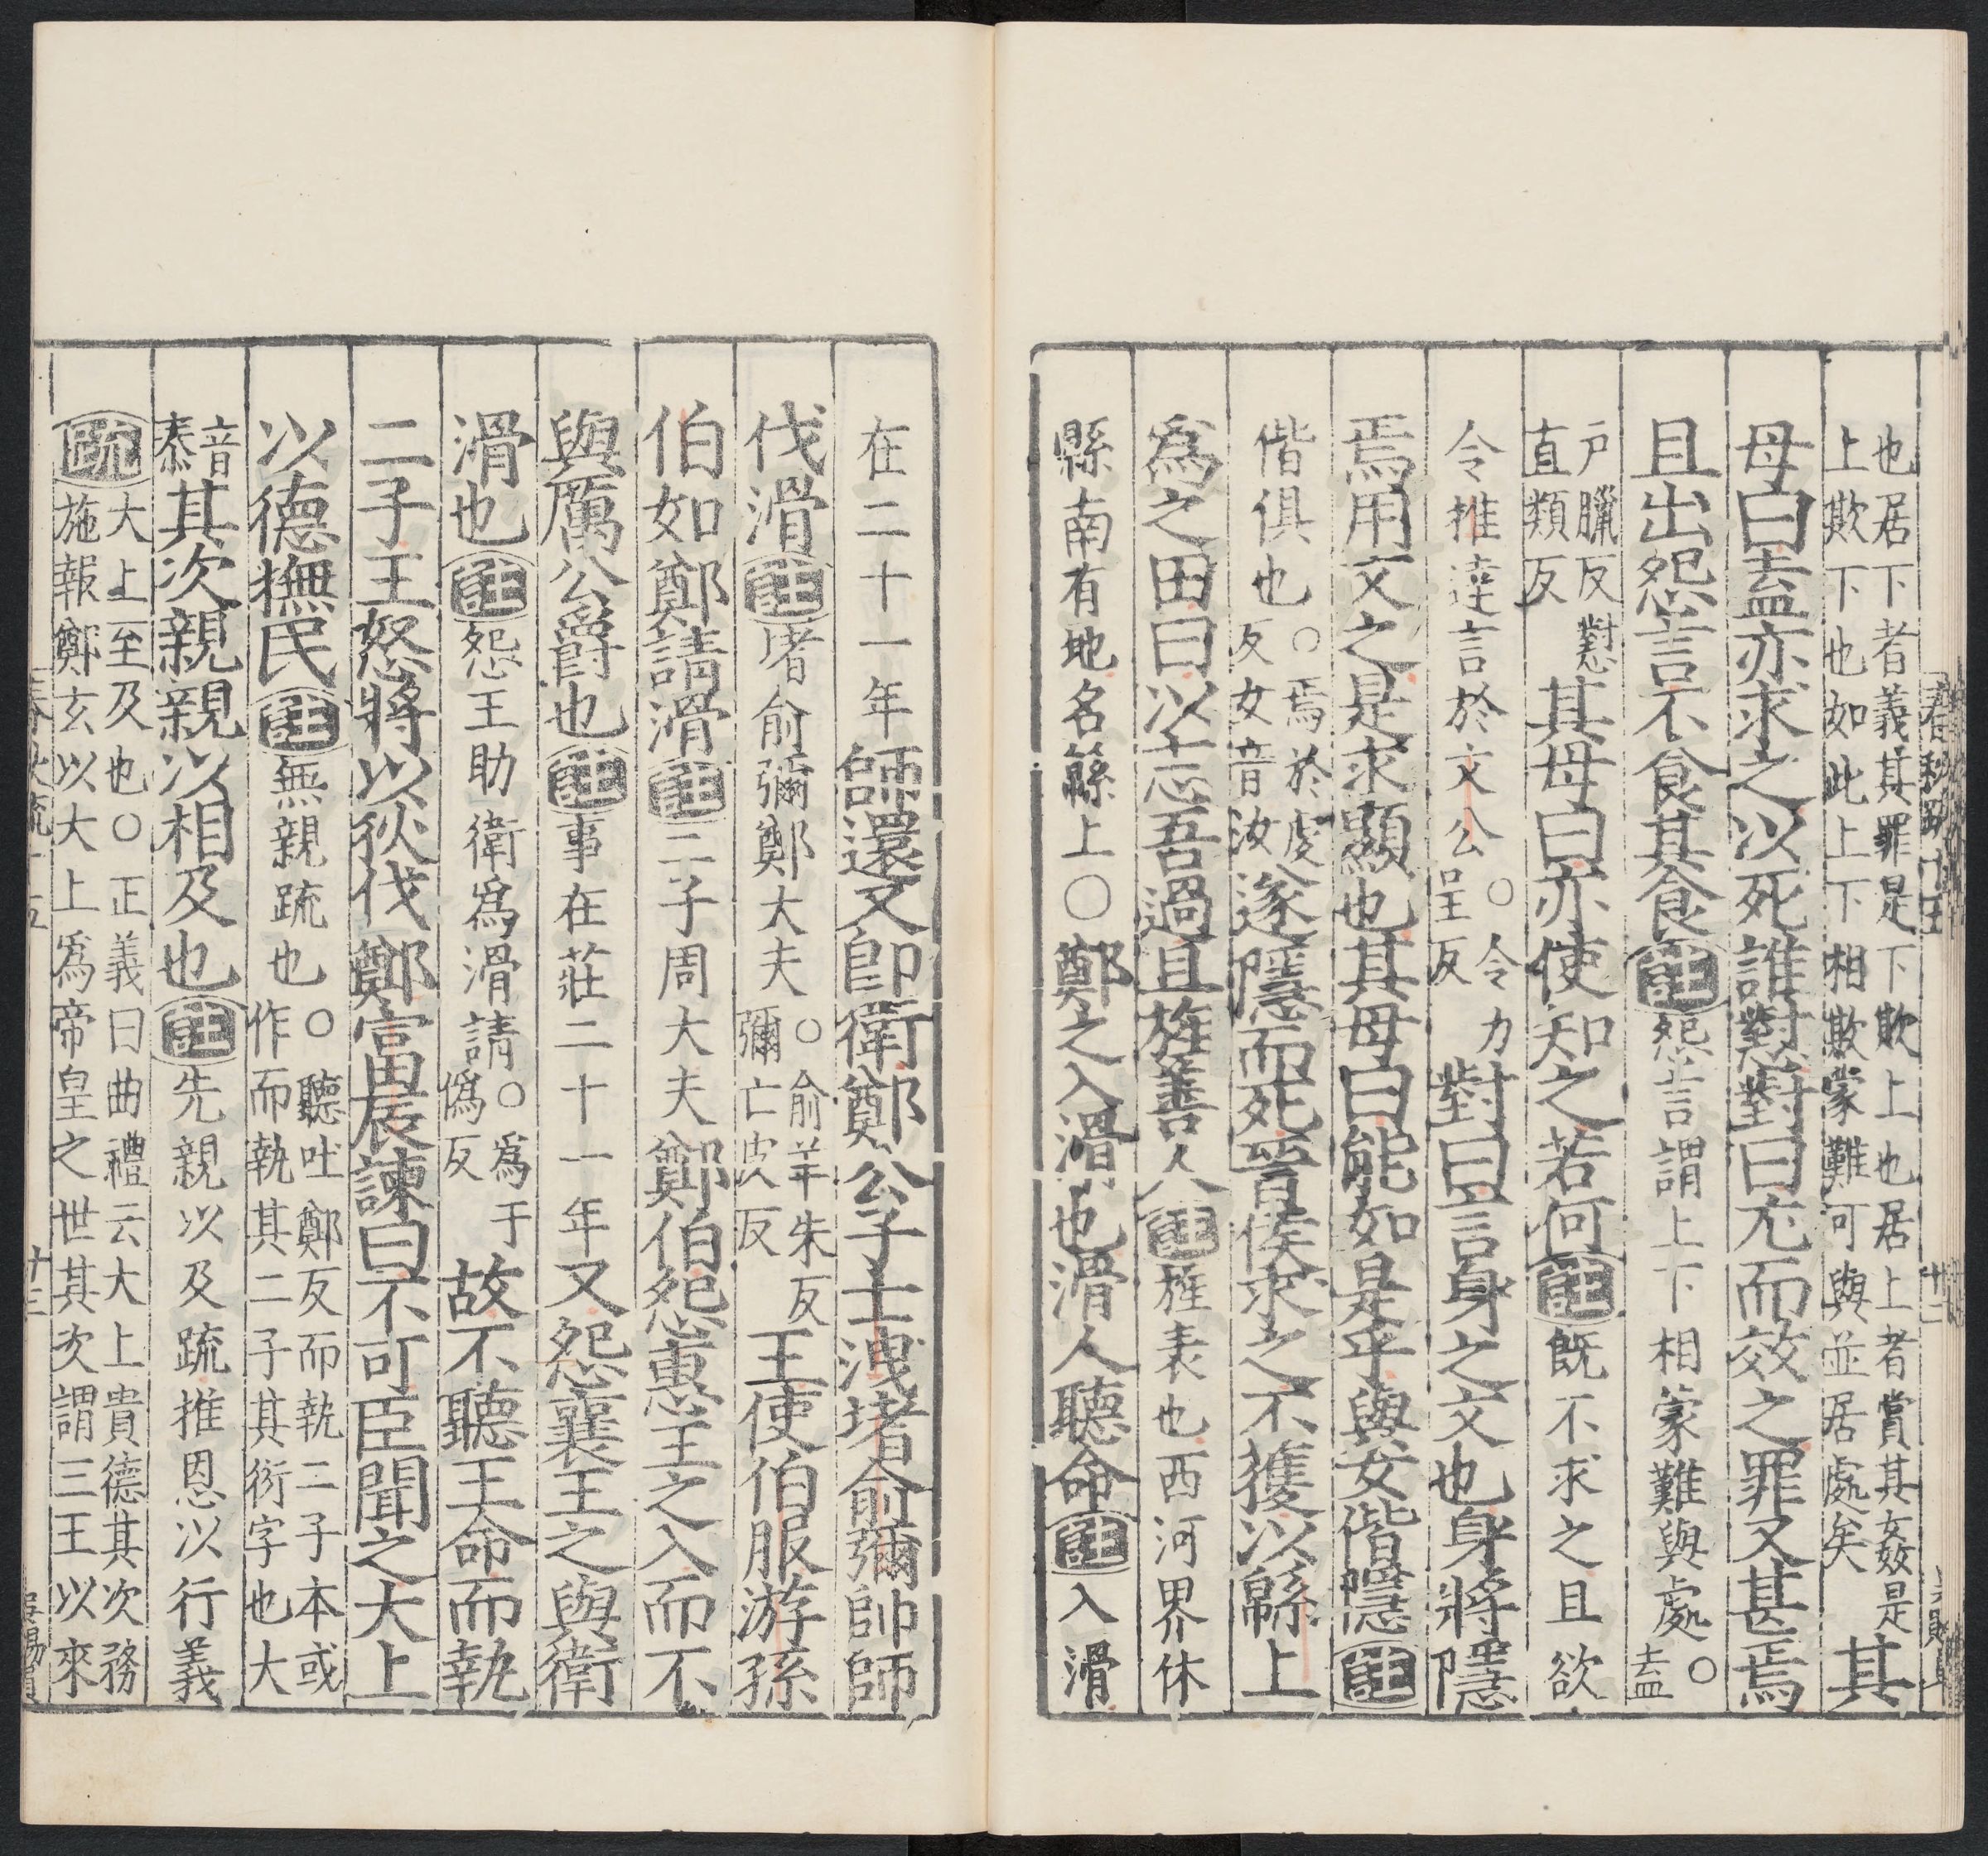 也居下者義其罪是下欺上也居上者賞其姦是
上欺下也如此上下相欺蒙難可與並居處矣
其
母曰盍亦求之以死誰懟對曰尤而效之罪又甚焉
且出怨言不食其食註怨言謂上下相蒙難與處○盍
戶臘反懟
直類反
其母曰亦使知之若何註既不求之且欲
令推達言於文公○令力
呈反
對曰言身之文也身將隱
焉用文之是求顯也其母曰能如是乎與女偕隱註
偕俱也○焉於虔
反女音汝
遂隱而死晉侯求之不獲以緜上
爲之田曰以志吾過且旌善人註旌表也西河界休
縣南有地名緜上○鄭之入滑也滑人聽命註入滑
在二十一年師還又即衛鄭公子士洩堵俞彌帥師
伐滑註堵俞彌鄭大夫○俞羊朱反
彌亡皮反
王使伯服游孫
伯如鄭請滑註二子周大夫鄭伯怨惠王之入而不
與厲公爵也註事在莊二十一年又怨襄王之與衛
滑也註怨王助衛爲滑請○爲于
僞反
故不聽王命而執
二子王怒將以狄伐鄭富辰諫曰不可臣聞之大上
以德撫民註無親疏也○聽吐鄭反而執二子本或
作而執其二子其衍字也大
音
泰
其次親親以相及也註先親以及疏推恩以行義
疏大上至及也○正義曰曲禮云大上貴德其次務
施報鄭玄以大上爲帝皇之世其次謂三王以來